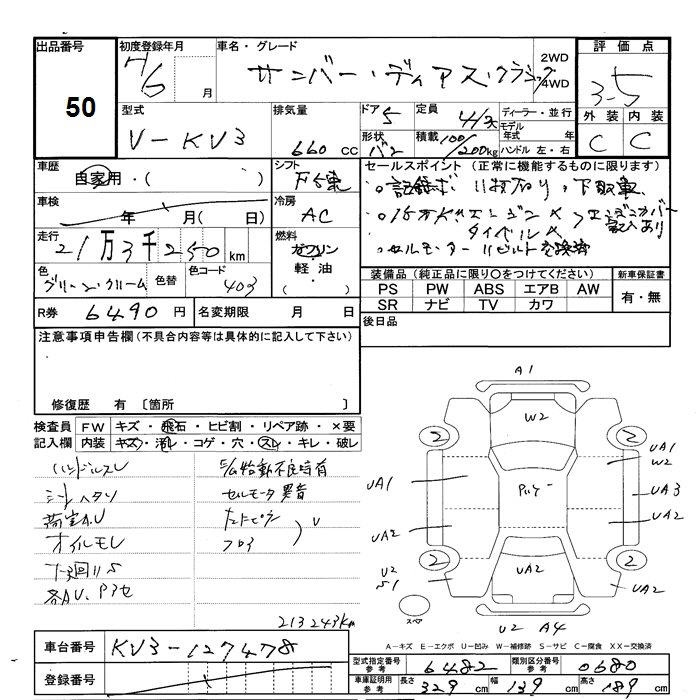 出品番号
50
初度登録年月
7/6 月
車名・グレード
サンバー・ディアス・クラシック
2WD
4WD
評価点
3.5
外装 内装
C C
型式
V-KV3
排気量
660 cc
ドア
5
形状
バン
定員
4/2
積載 100/200kg
ディーラー・並行
モデル
年式 年
ハンドル 左・右
車歴
自家用・( )
シフト
車検
年 月( 日)
冷房
AC
走行
21万3千250 km
燃料
ガソリン
軽油・
( )
色
グリーン・クリーム
色替
色コード
403
R券 6490 円
名変期限 月 日
セールスポイント (正常に機能するものに限ります)
。記録簿
下取車
タイベル
記入あり
。セルモーターリビルト交換済
装備品 (純正品に限り○をつけてください)
新車保証書
PS PW ABS エアB AW
SR ナビ TV カワ
有・無
後日品
注意事項申告欄(不具合内容等は具体的に記入して下さい)
修復歴 有 〔箇所 〕
検査員
記入欄
FW キズ・飛石・ヒビ割・リペア跡・×要
内装 キズ・汚レ・コゲ・穴・スレ・キレ・破レ
ハンドルスレ
シートヘタリ
荷室A.U
オイルモレ
下廻りS
各AU、Pアセ
E/G始動不良時有
セルモータ異音
フロア
U
213243km
A1
W2
2
2
UA1
UA1
W2
UA3
UA2
UA2
UA2
2
2
U2
S1
UA2
スペア
U2 A4
A-キズ E-エクボ U-凹み W-補修跡 S-サビ C-腐食 XX-交換済
車台番号
KV3-127478
登録番号
型式指定番号
参考
6482
類別区分番号
参考
0680
車庫証明用
参考
長さ 329 cm
幅 139 cm
高さ 189 cm